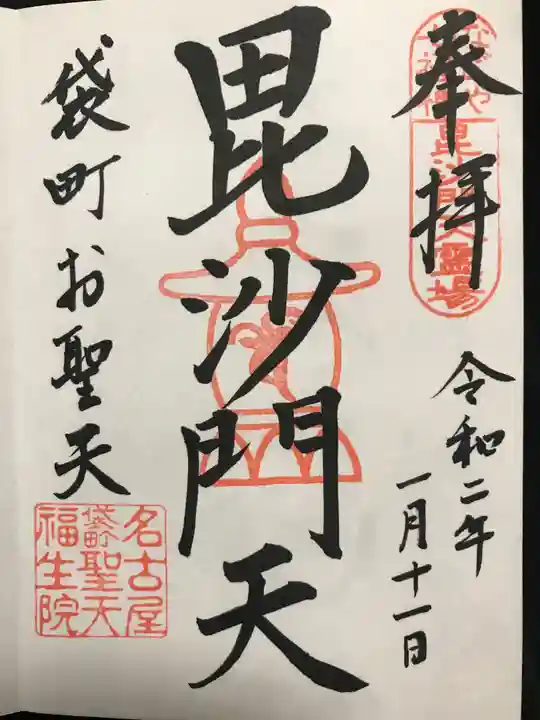 奉拝
毘沙門天霊場
令和二年
一月十一日
毘沙門天
袋町お聖天
名古屋
袋町聖天
福生院